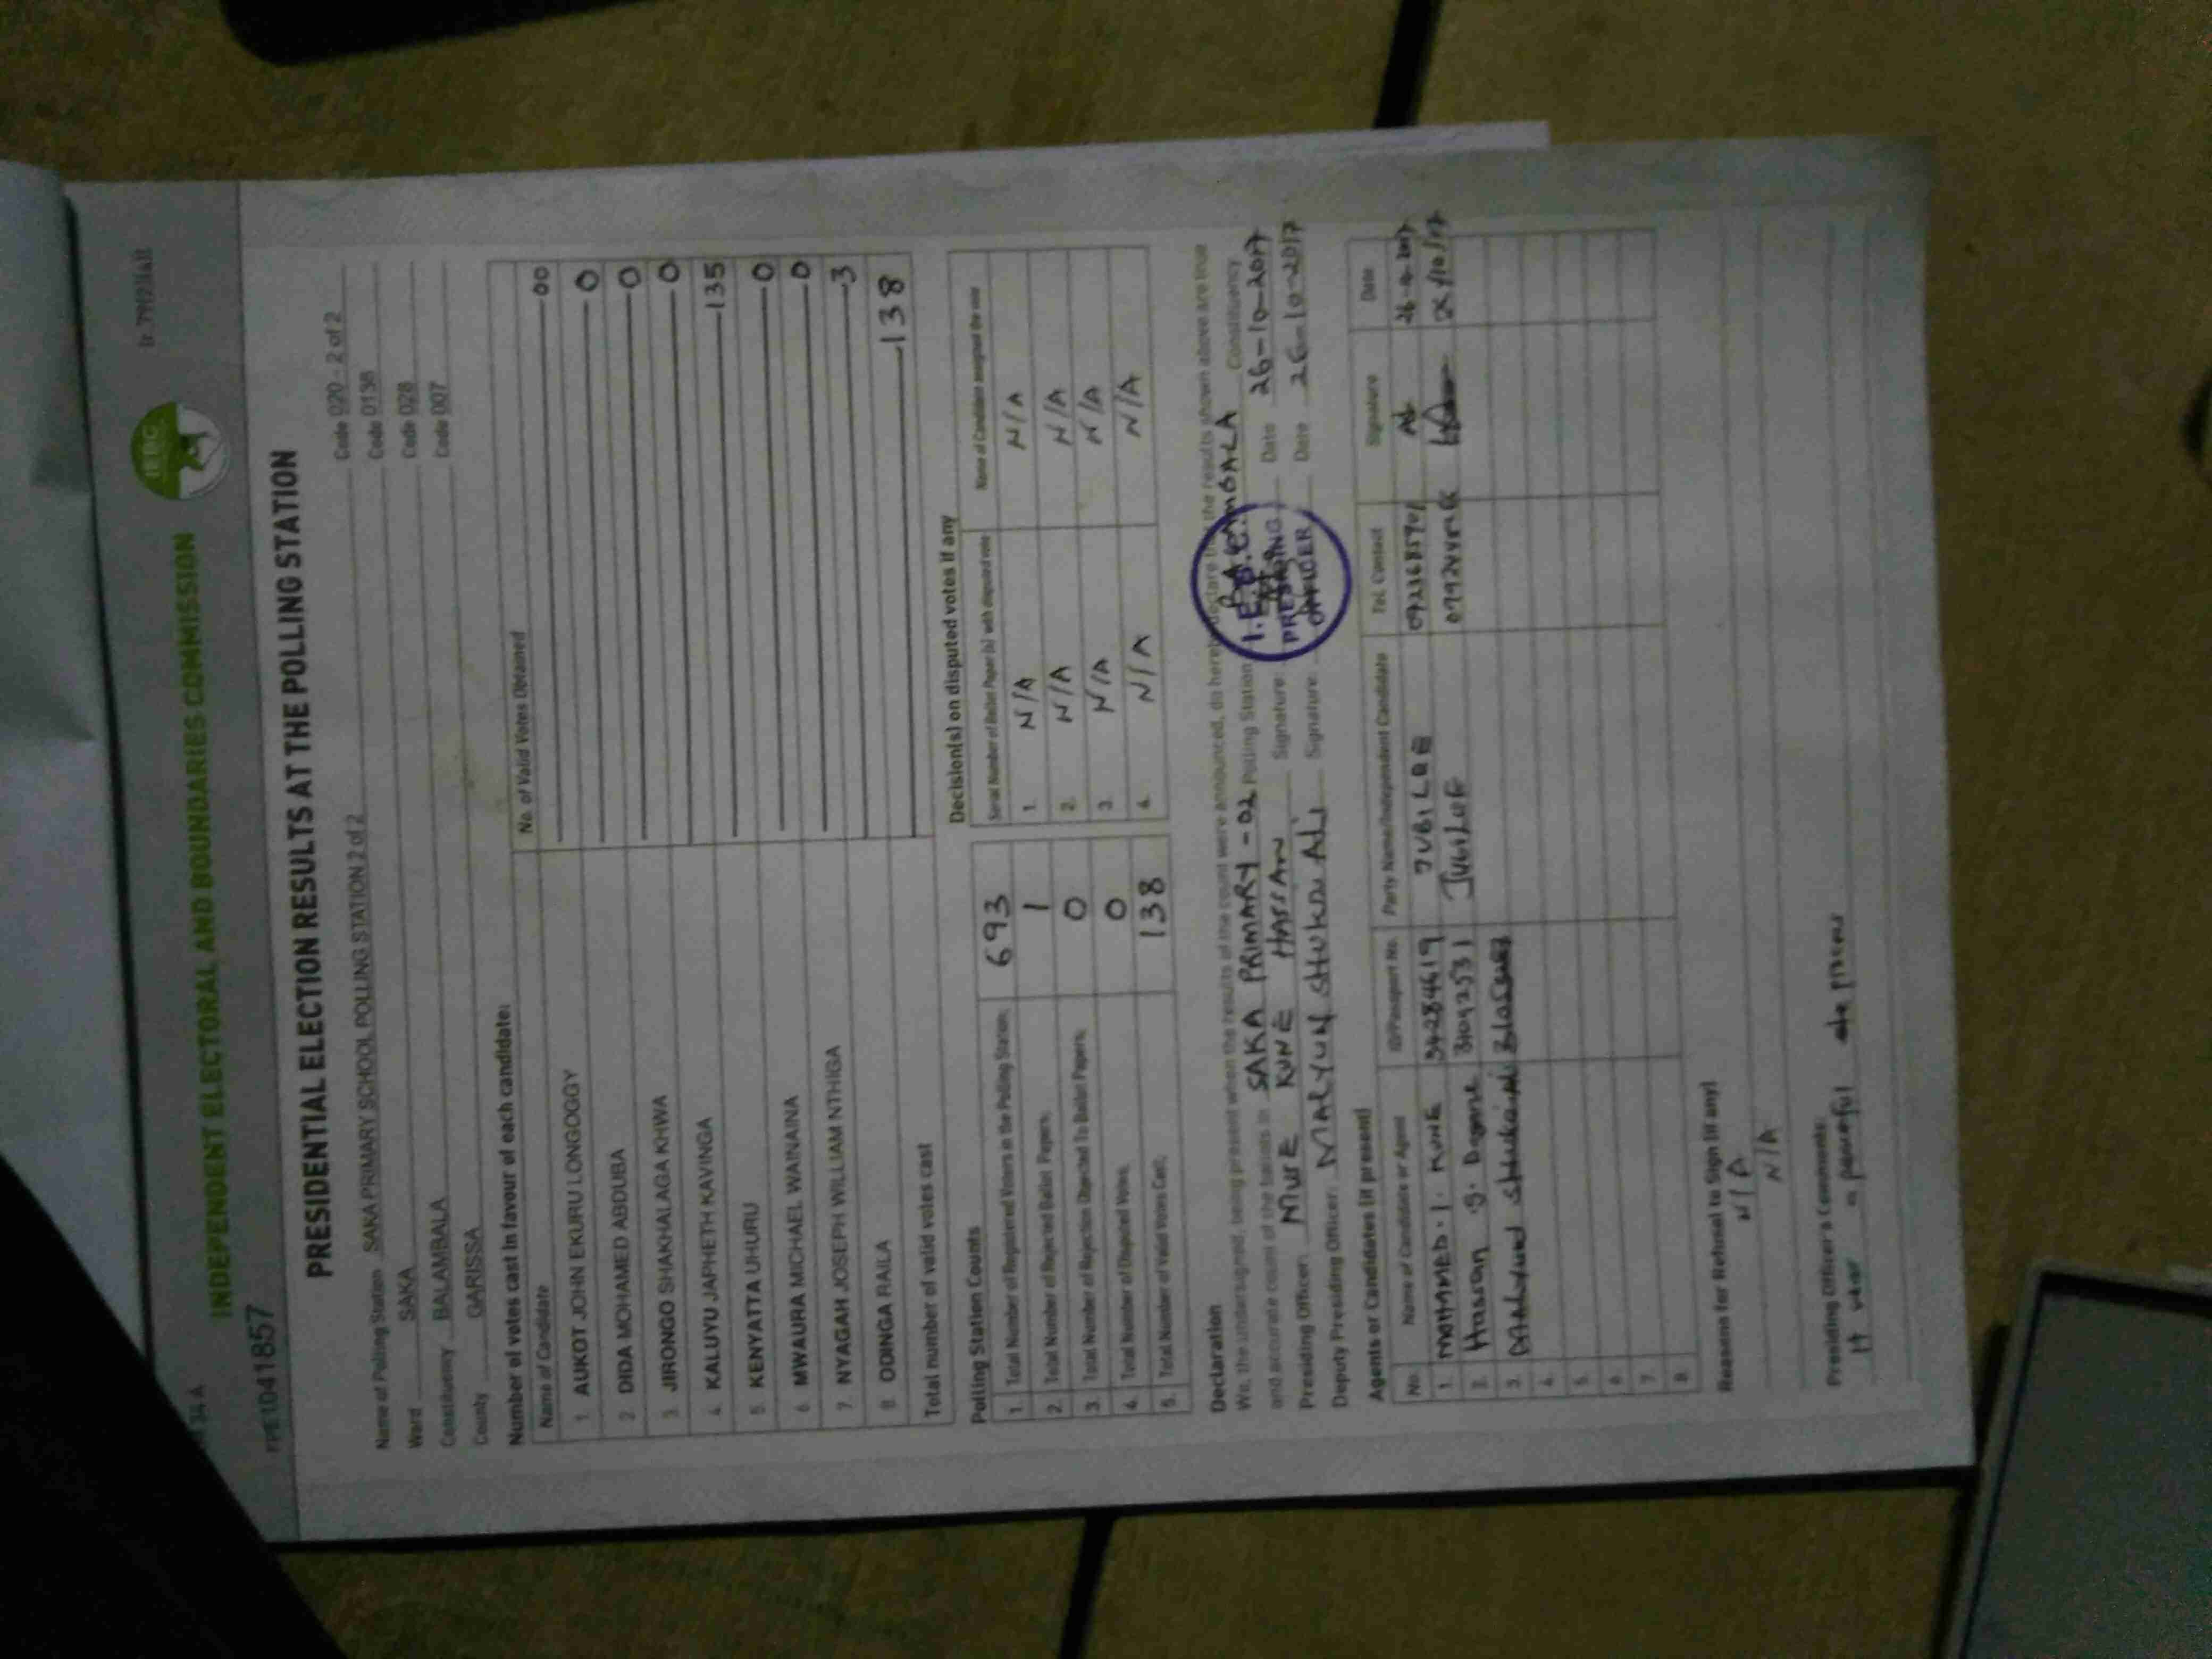 34A
IEBC
INDEPENDENT ELECTORAL AND BOUNDARIES COMMISSION
1041857
PRESIDENTIAL ELECTION RESULTS AT THE POLLING STATION
Name of Polling Station SAKA PRIMARY SCHOOL POLLING STATION 2 of 2 Code 020 - 2 of 2
Ward SAKA Code 0138
Constituency BALAMBALA Code 028
County GARISSA Code 007
Number of votes cast in favour of each candidate:
Name of Candidate No. of Valid Votes Obtained
1. AUKOT JOHN EKURU LONGOGGY 00
2. DIDA MOHAMED ABDUBA 0
3. JIRONGO SHAKHALAGA KHWA 0
4. KALUYU JAPHETH KAVINGA 0
5. KENYATTA UHURU 135
6. MWAURA MICHAEL WAINAINA 0
7. NYAGAH JOSEPH WILLIAM NTHIGA 0
8. ODINGA RAILA 3
Total number of valid votes cast 138
Polling Station Counts
1. Total Number of Registered Voters in the Polling Station; 693
2. Total Number of Rejected Ballot Papers; 1
3. Total Number of Rejection Objected To Ballot Papers; 0
4. Total Number of Disputed Votes; 0
5. Total Number of Valid Votes Cast; 138
Decision(s) on disputed votes if any
Serial Number of Ballot Paper (s) with disputed vote Name of Candidate assigned the vote
1. N/A N/A
2. N/A N/A
3. N/A N/A
4. N/A N/A
Declaration
We, the undersigned, being present when the results of the count were announced, do hereby declare that the results shown above are true
and accurate count of the ballots in SAKA PRIMARY - 02 Polling Station BALAMBALA Constituency
Presiding Officer: KUNE HASSAN Signature Date 26-10-2017
Deputy Presiding Officer: MALYUN SHUKRI ALI Signature Date 26-10-2017
I.E.B.C.
PRESIDING
OFFICER
Agents or Candidates (if present)
No. Name of Candidate or Agent ID/Passport No. Party Name/Independent Candidate Tel. Contact Signature Date
1. MOHAMED . I . KUNE 34284619 JUBILEE
2. Hassan Dagane JUBILEE
3.
4.
5.
6.
7.
8.
Reasons for Refusal to Sign (if any)
N/A
N/A
Presiding Officer's Comments:
It was a peaceful